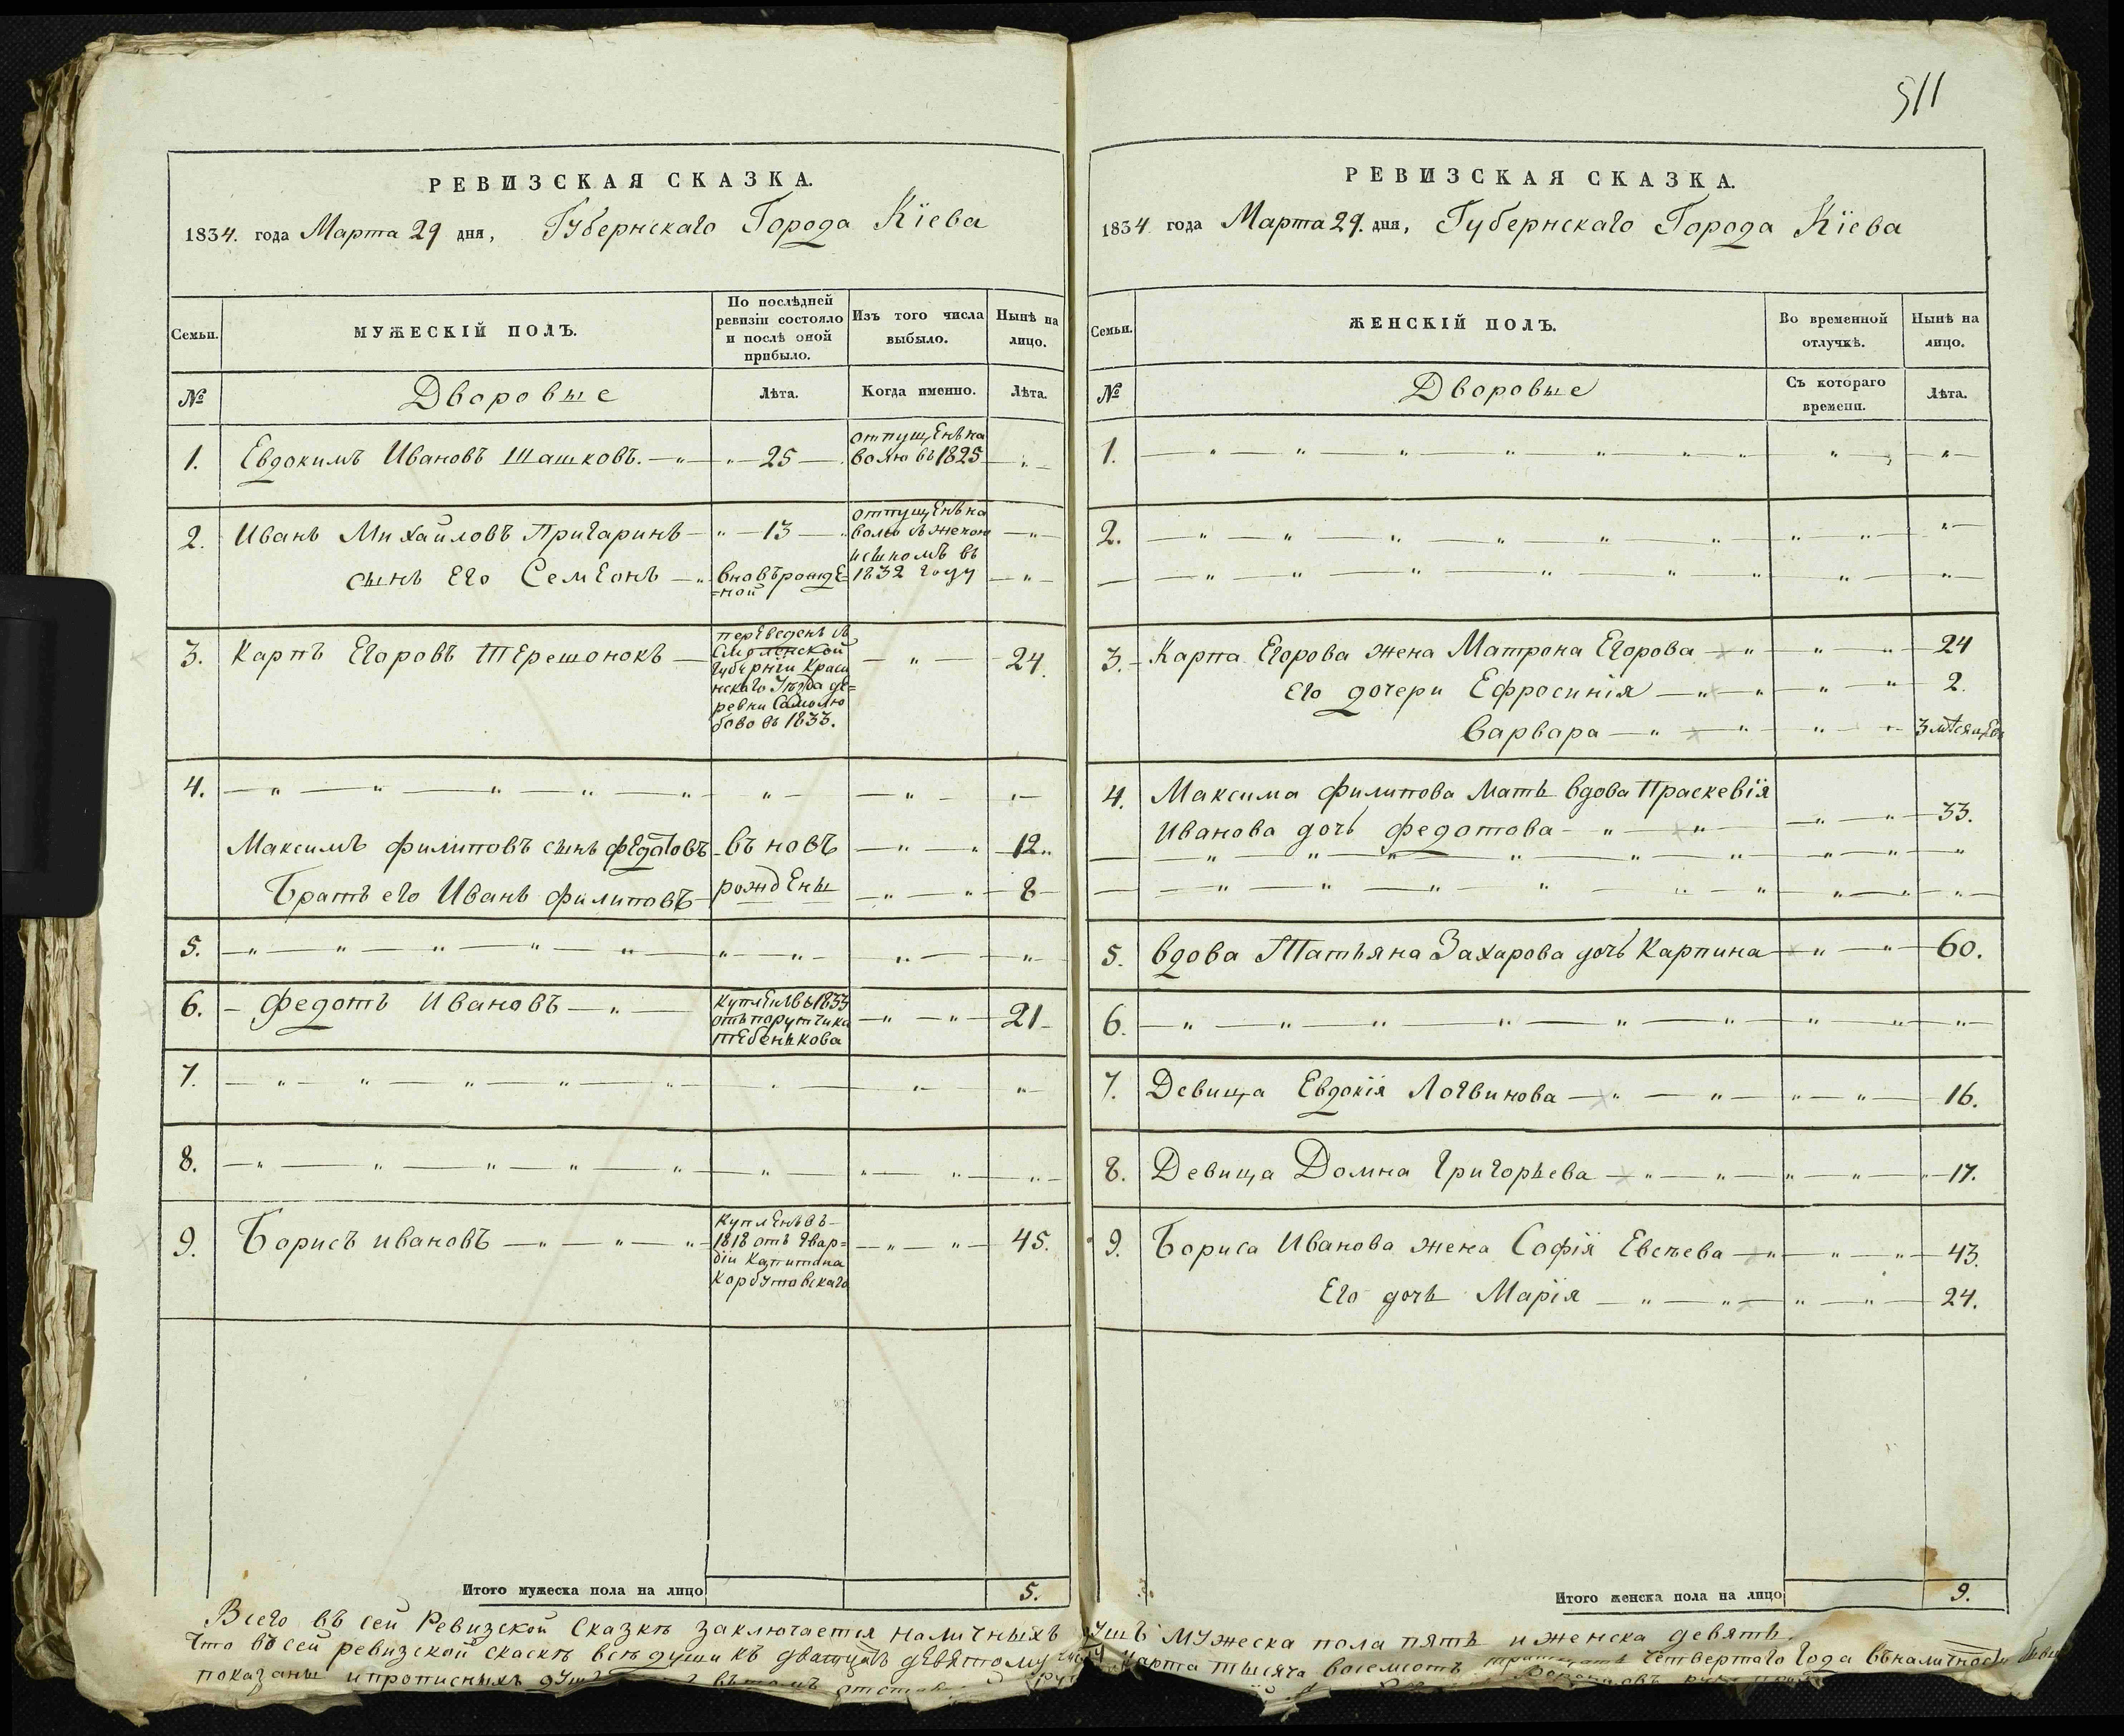 511
РЕВИЗСКАЯ СКАЗКА.
1834. года Марта 29 дня, Губернскаго Города Кїева
Семьи.
МУЖЕСКІЙ ПОЛЪ.
По послѣдней ревизіи состояло и послѣ оной прибыло.
Изъ того числа выбыло.
Нынѣ на лицо.
№
Дворовые
Лѣта.
Когда именно.
Лѣта.
1. Евдокимъ Ивановъ Шашковъ. — " — " — 25 — отпущенъ на волю въ 1825 — " —
2. Иванъ Михайловъ Пригаринъ — " — 13 — " отпущенъ на волю съ женою — " —
сынъ Его Семıонъ — " вновърожде=ной исыномъ въ 1832 году — " —
3. Карпъ Егоровъ Терешонокъ —
переведенъ съ
Смоленской
Губернїи Красн
нскаго Уезда де=
ревни Самолю
бово въ 1833.
— " — 24.
4. — " — " — " — " — " — " — " — " —
Максимъ филиповъ сынъ федотовъ въ новъ — " — " 12.
Братъ его Иванъ филиповъ рождены — " — " — 8
5. — " — " — " — " — " — " — " — " — " —
6. — федотъ Ивановъ — " —
купленъ въ 1833
отъ порутчика
тебенькова
— " — " — 21
7. — " — " — " — " — " — " — " — " —
8. — " — " — " — " — " — " — " — " — " —
9. Борисъ ивановъ — " — " — "
купленъ въ
1818 отъ Гвар=
дїи Капитана
Корбутовскаго
— " — " — 45.
Итого мужеска пола на лицо 5.
РЕВИЗСКАЯ СКАЗКА.
1834 года Марта 29. дня, Губернскаго Города Кїева
Семьи.
ЖЕНСКІЙ ПОЛЪ.
Во временной отлучкѣ.
Нынѣ на лицо.
№
Дворовые
Съ котораго времени.
Лѣта.
1. — " — " — " — " — " — " — " — " — " —
2. — " — " — " — " — " — " — " — " — " —
— " — " — " — " — " — " — " — " —
3. Карпа Егорова жена Матрона Егорова — " — " — " — 24
Его дочери Ефросинія — " — " — " — " — 2.
Варвара — " — " — " — " — 3 мѣсяцов
4. Максима филипова Мать вдова Праскевїя
Иванова дочь федотова — " — " — " — " — 33.
— " — " — " — " — " — " — " — " — "
— " — " — " — " — " — " — " — " — "
5. вдова Татьяна Захарова дочь Карпина — " — " — 60.
6. — " — " — " — " — " — " — " — " — " —
7. Девица Евдокїя Логвинова — " — " — " — " — 16.
8. Девица Домна Григорьева — " — " — " — " — 17.
9. Бориса Иванова жена Софїя Евсѣева — " — " — " — 43.
Его дочь Марїя — " — " — " — " — 24.
Итого женска пола на лицо 9.
Всего въ сей Ревизской Сказкѣ заключается наличныхъ душъ мужеска пола пять и женска девять.
Что въ сей ревизской скаскѣ всѣ души къ дватцать девятому Марта тысяча восемсотъ четвертаго Года въналичности
показаны ипрописныхъ